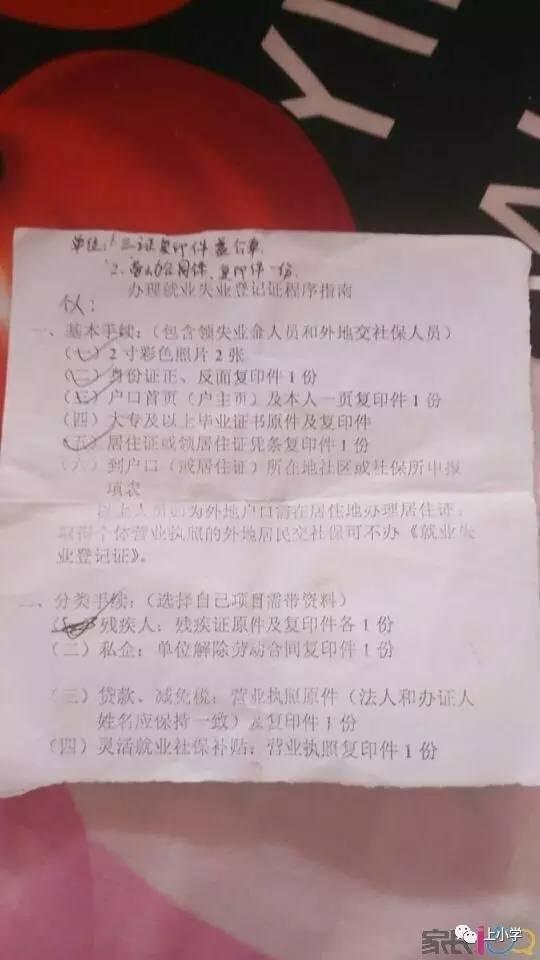 单位：1 三证复印件盖公章
2. 劳动合同件、复印件一份
办理就业失业登记证程序指南
个人：
一、基本手续：（包含领失业金人员和外地交社保人员）
（一）2寸彩色照片2张
（二）身份证正、反面复印件1份
（三）户口首页（户主页）及本人一页复印件1份
（四）大专及以上毕业证书原件及复印件
（五）居住证或领居住证凭条复印件1份
（六）到户口（或居住证）所在地社区或社保所申报
填表
以上人员如为外地户口需在居住地办理居住证，
取得个体营业执照的外地居民交社保可不办《就业失
业登记证》。
二、分类手续：（选择自己项目需带资料）
残疾人：残疾证原件及复印件各1份
（二）私企：单位解除劳动合同复印件1份
（三）贷款、减免税：营业执照原件（法人和办证人
姓名应保持一致）及复印件1份
（四）灵活就业社保补贴：营业执照复印件1份
上小学
家长100